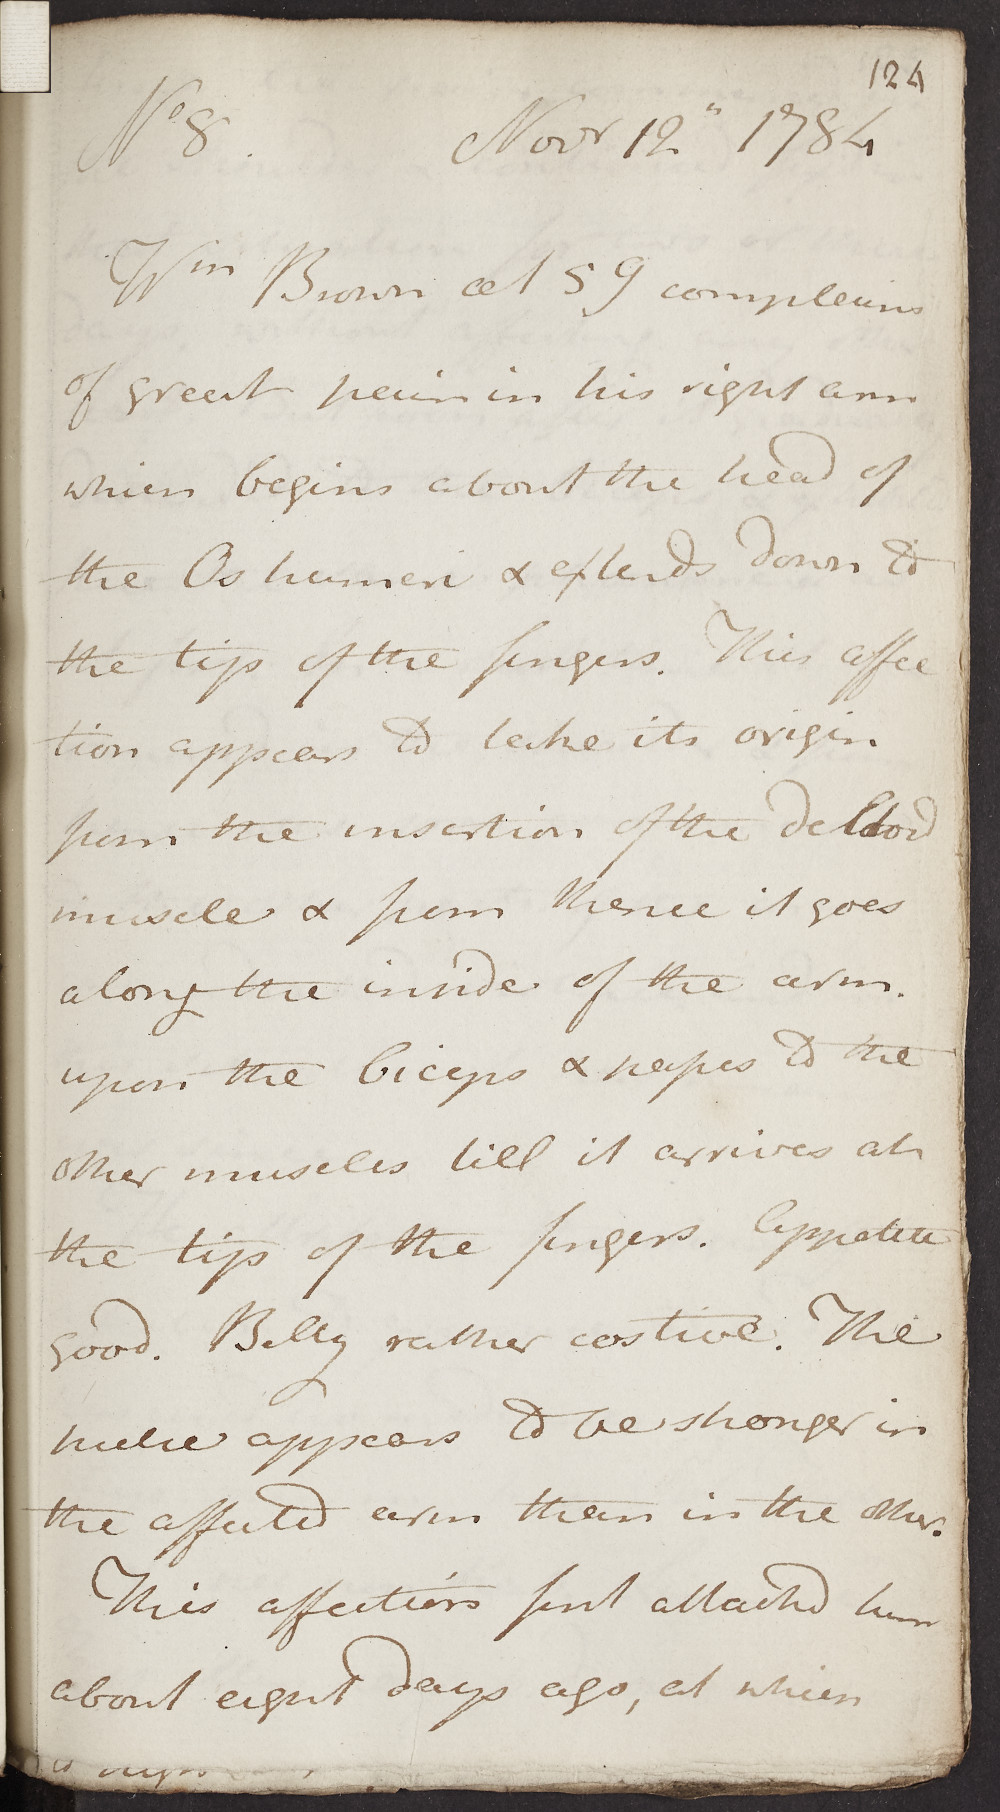 124
No 8. Novr 12th 1784
Wm Brown aet 59 complains
of great pain in his right arm
which begins about the head of
the Os humeri & extends down to
the tips of the fingers. This affec
tion appears to take its origin
from the insertion of the deltoid
muscle & from thence it goes
along the inside of the arm.
upon the biceps & passes to the
other muscles till it arrives at
the tips of the fingers. Appetite
good. Belly rather costive. The
pulse appears to be stronger in
the affected arm than in the other.
This affection first attacked him
about eight days ago, at which